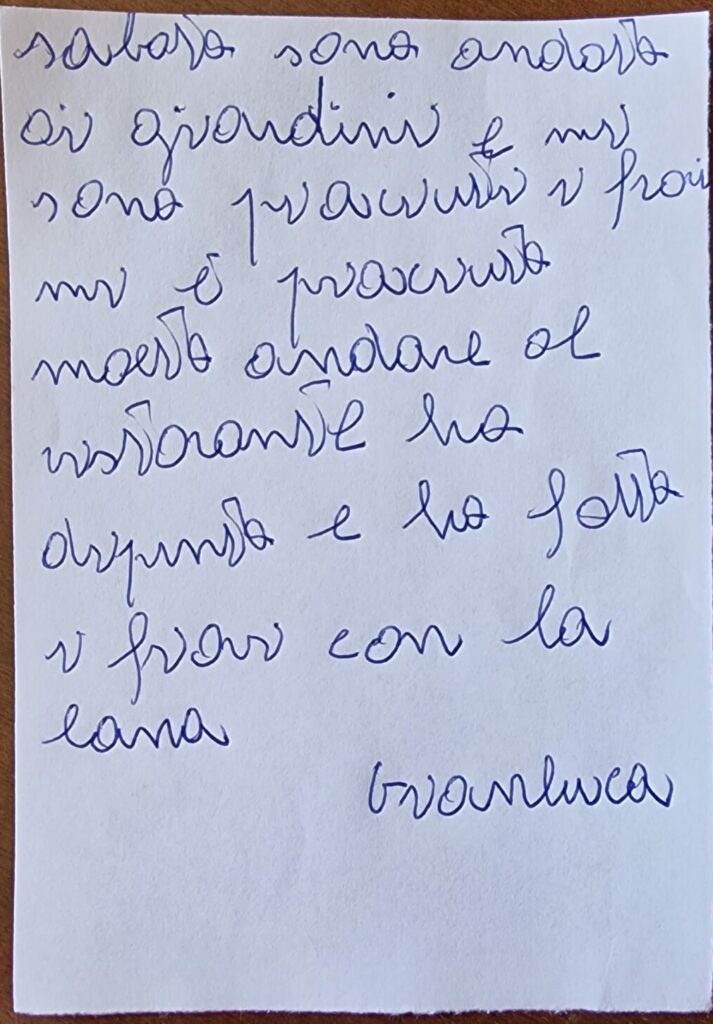 sabato sono andato
ai giardini e mi
sono piaciuti i fiori
mi è piaciuto
molto andare al
ristorante ho
dipinto e ho fatto
i fiori con la
lana
Gianluca